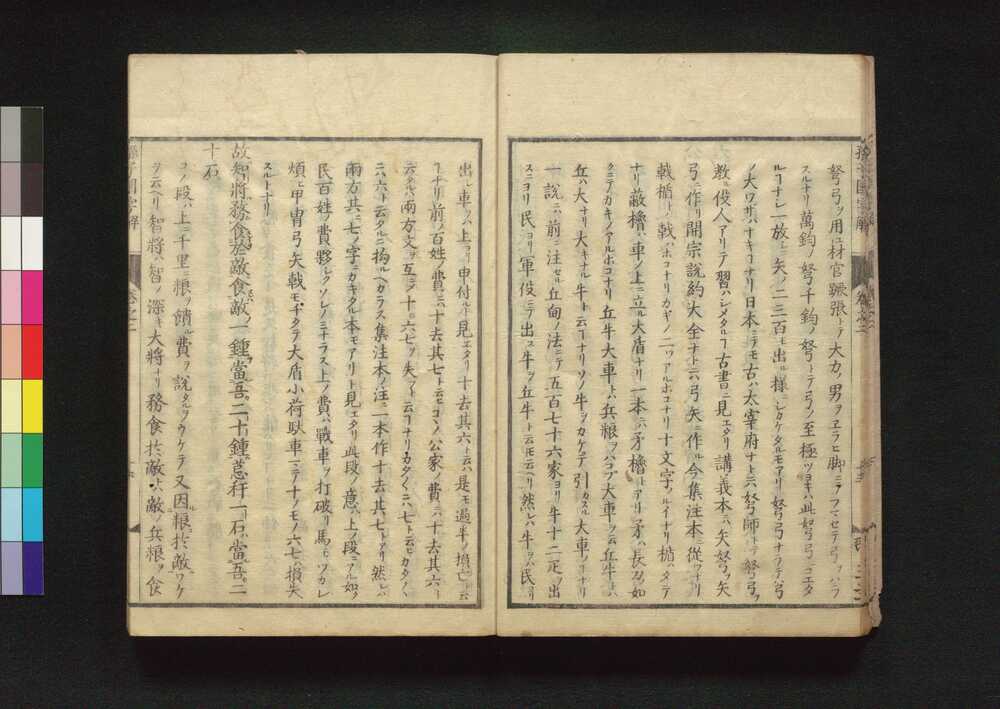 弩弓ヲ用ルニ材官蹶張トテ大力ノ男ヲヱラヒ脚ニテフマセテ弓ヲハラ
スルナリ萬鈞ノ弩千鈞ノ弩トテ弓ノ至極ツヨキハ此弩弓ニコエタ
ルコナシ一放シニ矢ノ二三百モ出ル様ニシカケタルモアリ弩弓ナラテハ弓
ノ大ワサハナキコナリ日本ニテモ古ハ太宰府ナトニ弩師トテ弩弓ヲ
教ル役人アリテ習ハシメタルコ古書ニ見エタリ講義本ニハ矢弩ヲ矢
弓ニ作リ開宗説約大全ナトニ弓矢ニ作ル今集注本ニ從フナリ
戟楯トハ戟ハホコナリカギノ二ツアルホコナリ十文字ノルイナリ楯ハタテ
ナリ蔽櫓ハ車ノ上ニ立ル大盾ナリ一本ニハ矛櫓トアリ矛ハ長刀ノ如
クニテカギノアルホコナリ丘牛大車トハ兵粮ヲハコブ大車ヲ云丘牛トハ
丘ハ大ナリ大キナル牛ト云コナリソノ牛ヲカケテ引カスル大車ト云コナリ
一説ニハ前ニ注セル丘甸ノ法ニテ五百七十六家ヨリ牛十二疋ヲ出
スニヨリ民ヨリ軍役ニテ出ス牛ヲ丘牛ト云トモ云ヘリ然レハ牛ヲハ民ヨリ
出シ車ヲハ上ヨリ申付ルト見エタリ十去其六ト云ハ是モ過半ノ損亡ト云
コナリ前ノ百姓ノ費ニハ十去其七ト云ヒコヽノ公家ノ費ニハ十去其六ト
云タルハ兩方文ヲ互ニシテ十ノ六七ヲ失フト云コナリカタ〱ニハ七ト云ヒカタ〱
ニハ六ト云タルニ拘ルヘカラス集注本ノ注ニ一本作十去其七トアリ然レハ
兩方共ニ七ノ字ニカキタル本モアリト見エタリ此段ノ意ハ上ノ段ニアル如ク
民百姓ノ費夥シクソレノミナラス上ノ費ハ戰車ヲ打破リ馬モツカレ
煩ヒ甲冑弓矢戟モギタテ大盾小荷駄車ニテ十ノモノ六七ハ損失
スルトナリ
故智將務食於敵食敵一鍾當吾二十鍾䓤秆一石當吾二
十石
コノ段ハ上ニ千里ニ粮ヲ饋ル費ヲ説タルヲウケテ又因粮於敵ワケ
ヲ云ヘリ智將ハ智ノ深キ大將ナリ務食於敵トハ敵ノ兵粮ヲ食